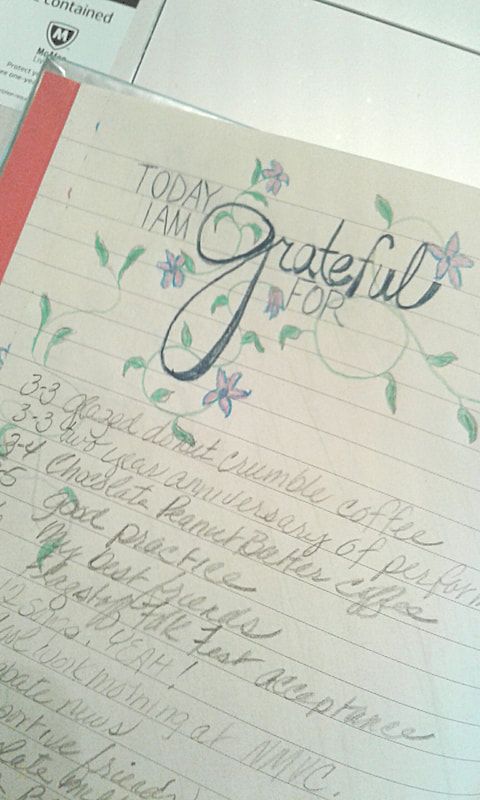 contained
M
McAfee
Protect you
one-yea
TODAY
I AM
grateful
FOR
3-3 glazed donut crumble coffee
3-3 two year anniversary of perform
3-4 Chocolate Peanut Butter coffee
-5 good practice
My best friends
Flagstaff Folk Fest acceptance
12 songs! YEAH!
work morning at NMVC.
news
friends